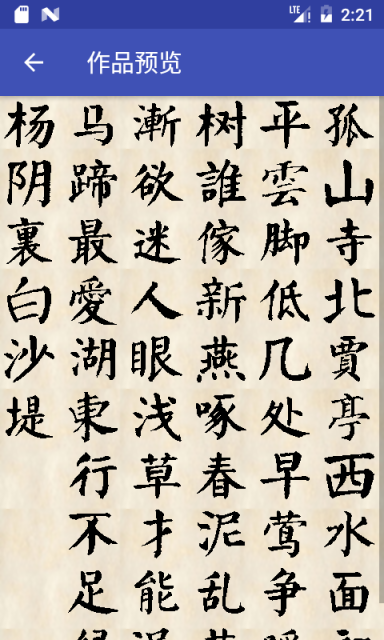 LTE 2:21
作品预览
孤山寺北賈亭西水面
平雲脚低几处早莺争
树誰傢新燕啄春泥乱
漸欲迷人眼浅草才能
马蹄最愛湖東行不足
杨阴裏白沙堤